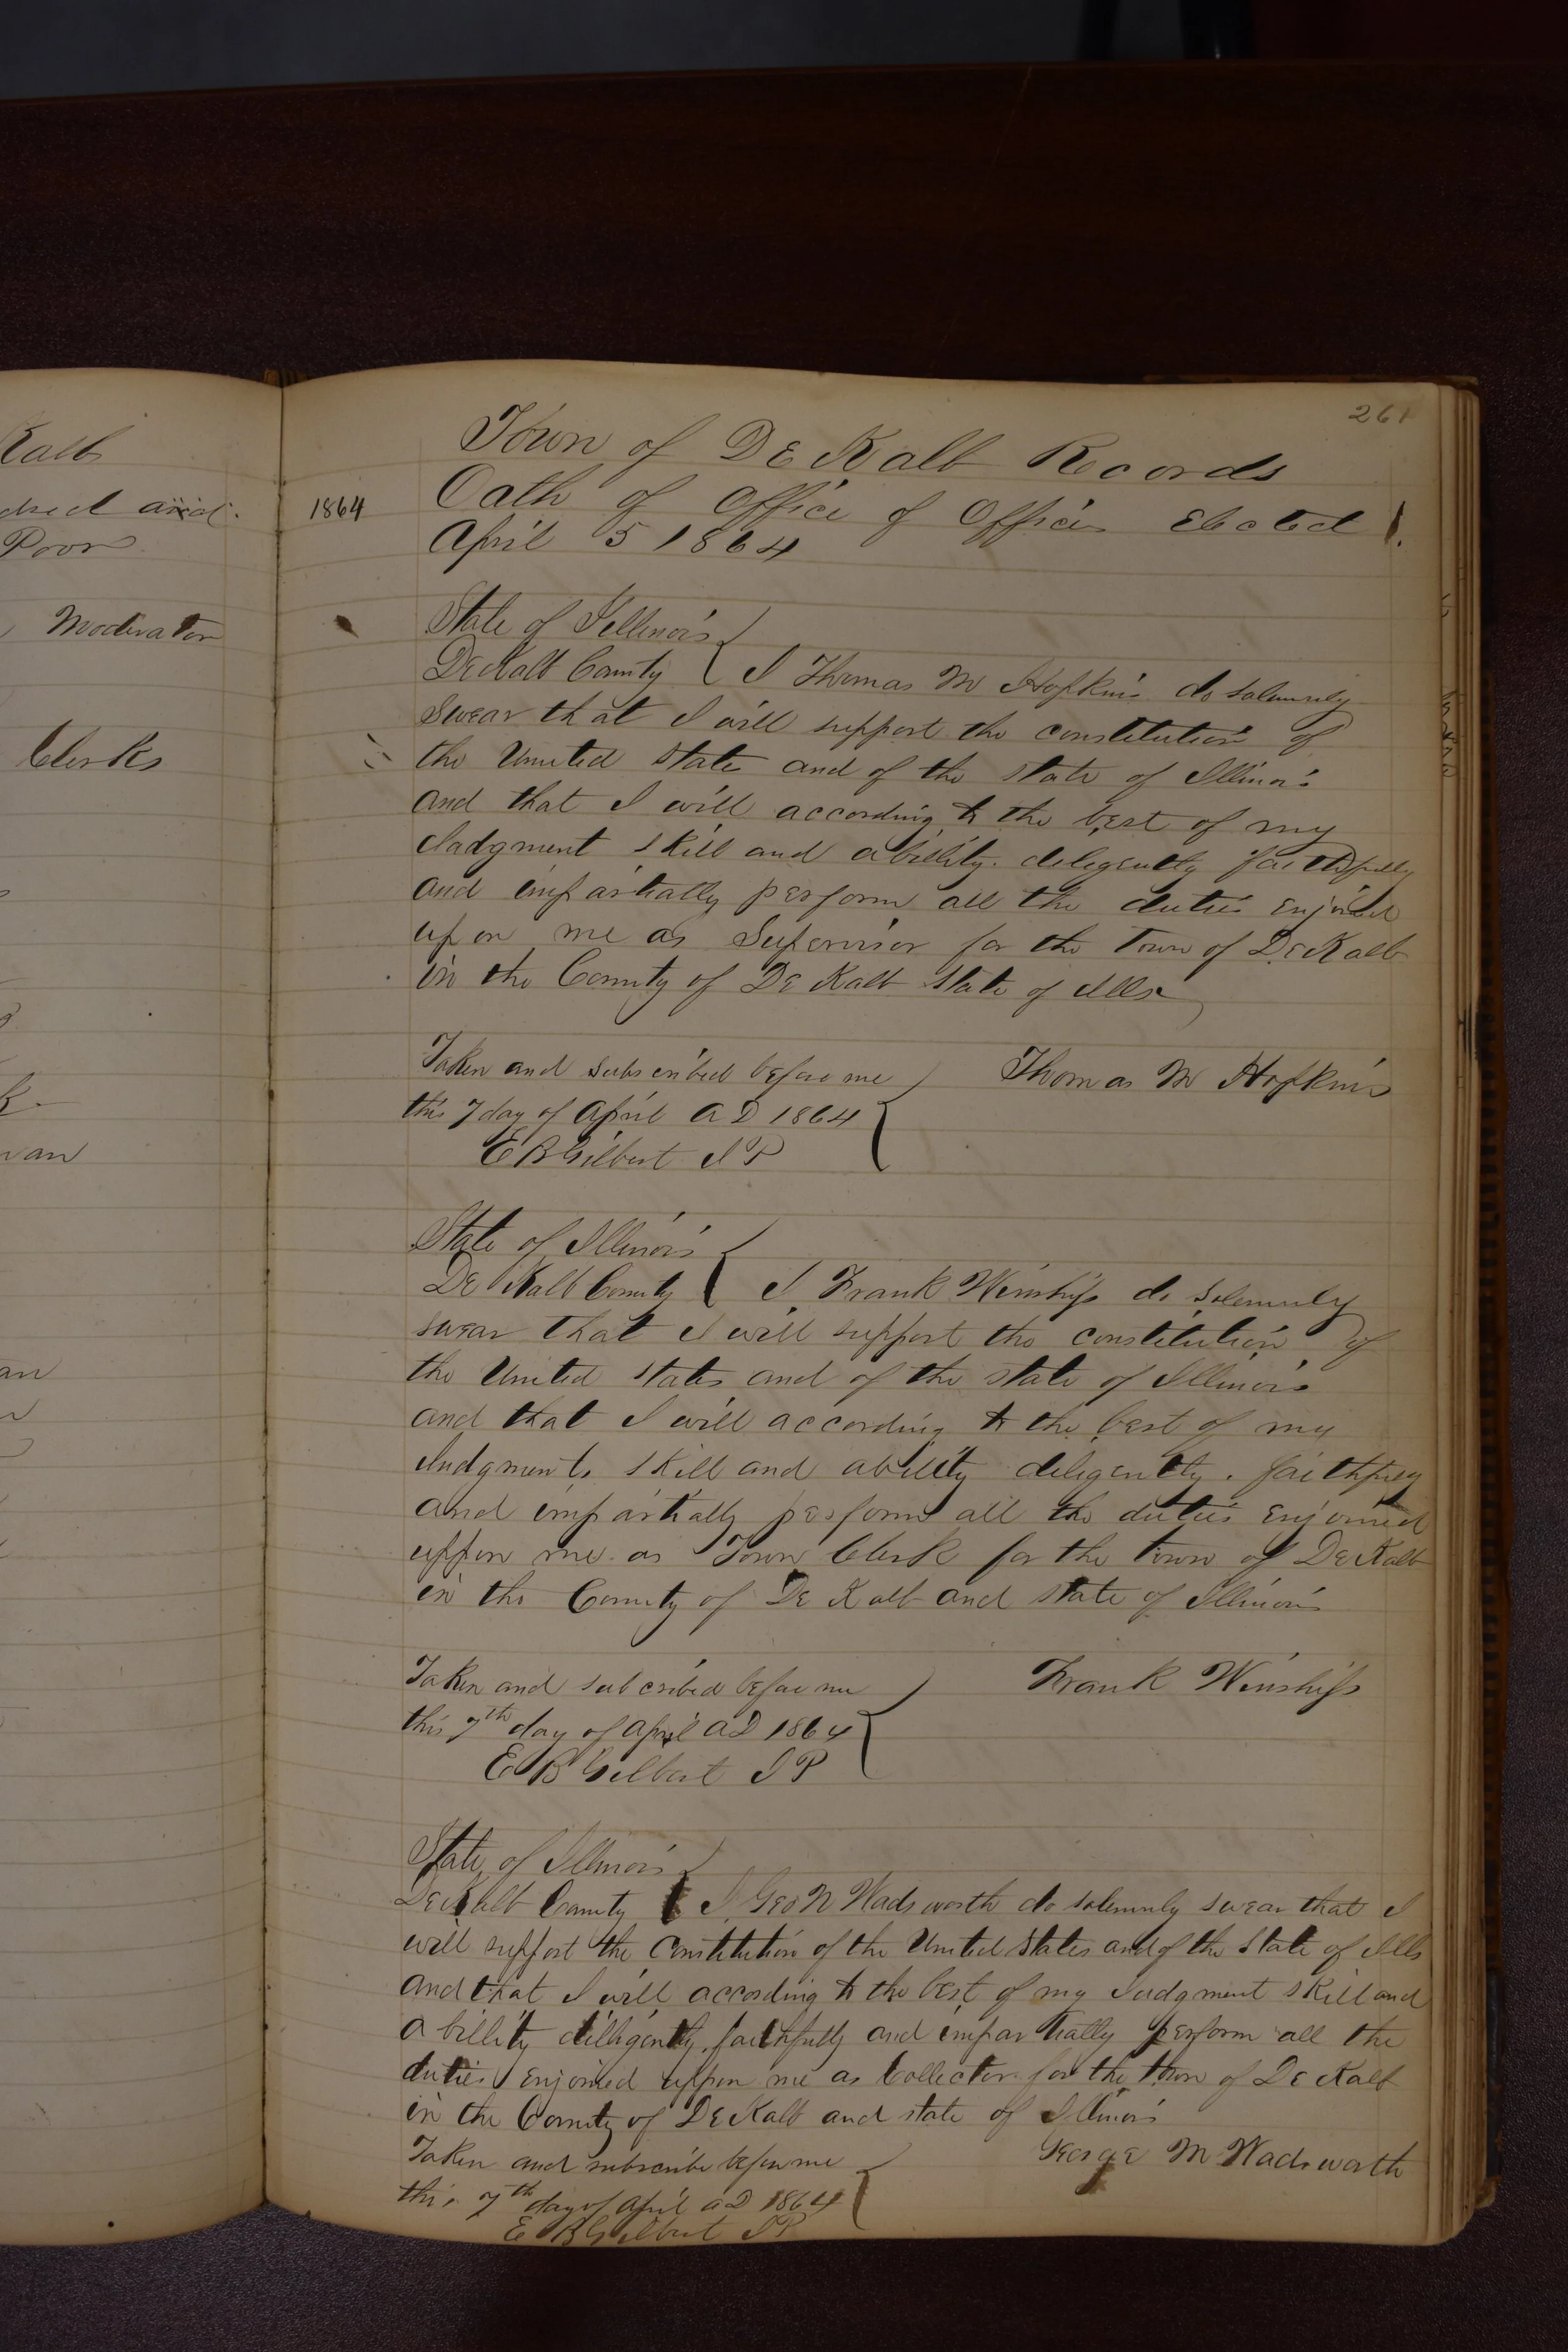 Kalb
Poor
Moderator
Clerks
261
Town of DeKalb Records
1864 Oath of Office of Officers Elected
April 5 1864
State of Illinois
DeKalb County I Thomas M Hopkins do solemnly
Swear that I will support the constitution of
the United States and of the state of Illinois
and that I will according to the best of my
Judgment skill and abillity. deligently faithfully
and impartially perform all the duties enjoined
upon me as Supervisor for the Town of DeKalb
in the County of DeKalb State of Ills
Taken and subscribed before me Thomas M Hopkins
this 7 day of April A D 1864
E B Gilbert J P
State of Illinois
De Kalb County I Frank Winship do solemnly
swear that I will support the constitution of
the United States and of the state of Illinois
and that I will according to the best of my
Judgment skill and abillity deligently. faithfully
and impartially perform all the duties enjoined
uppon me as Town Clerk for the town of DeKalb
in the County of De Kalb and state of Illinois
Taken and subcribed before me Frank Winship
this 7th day of April AD 1864
E B Gilbert J P
State of Illinois
DeKalb County I Geo N Wadsworth do solemnly swear that I
will support the Constitution of the United States and of the State of Ills
and that I will according to the best of my Judgment skill and
abillity dilligently, faithfully and impartially perform all the
duties enjoined uppon me as Collector for the town of De Kalb
in the County of DeKalb and state of Illinois
Taken and subscribe before me George M Wadsworth
this 7th day of April AD 1864
E B Gilbert J P